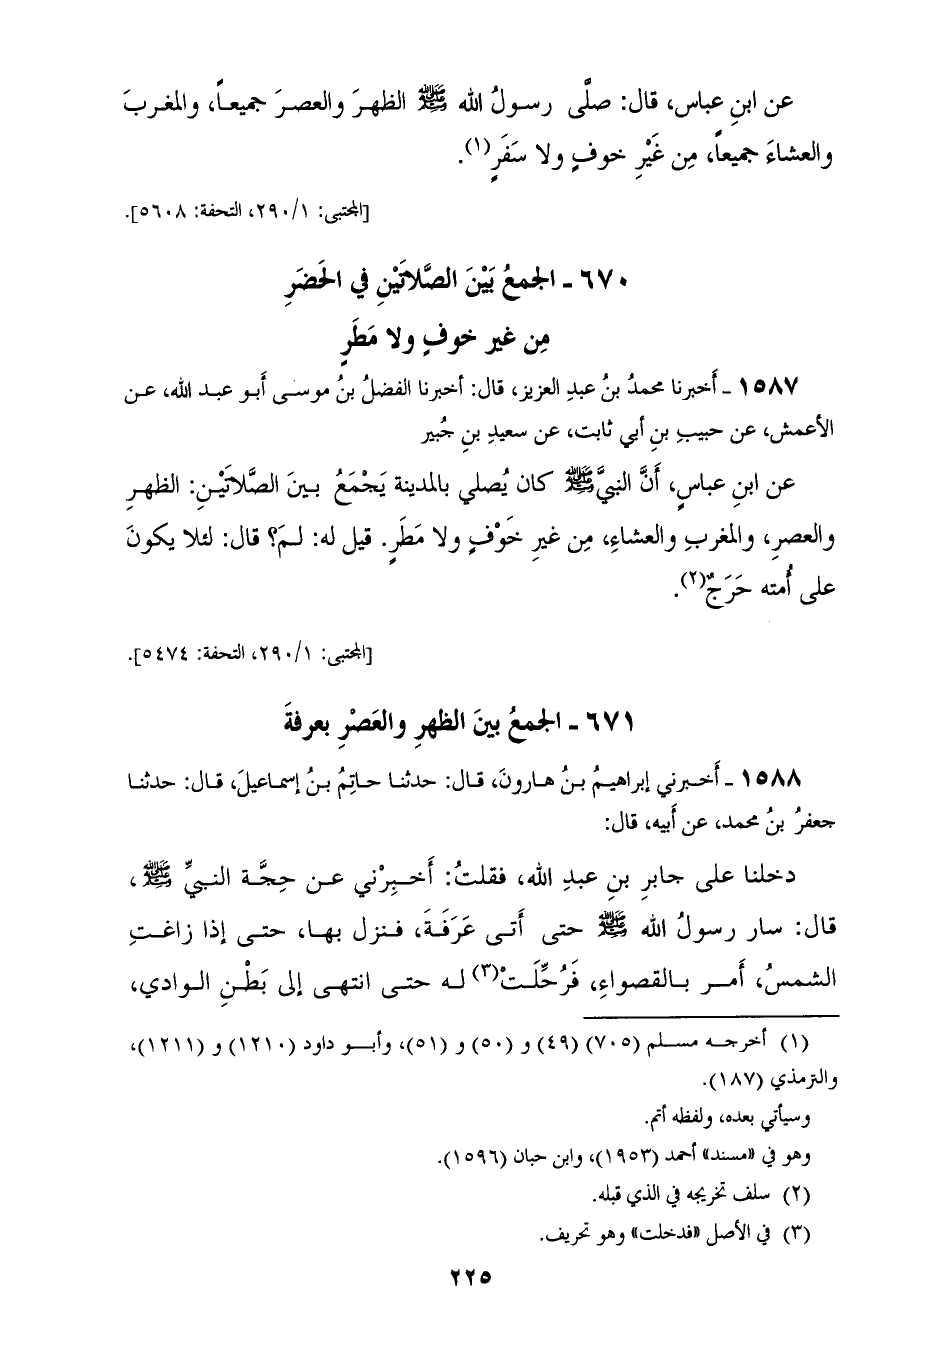 عن ابنِ عباس، قال: صلَّى رسولُ الله ﷺ الظهرَ والعصرَ جميعاً، والمغربَ
والعشاءَ جميعاً، مِن غَيْرِ خوفٍ ولا سَفَرٍ(١).
[المجتبى: ٢٩٠/١، التحفة: ٥٦٠٨].
٦٧٠ ـ الجمعُ بَيْنَ الصَّلاتَيْنِ في الحَضَرِ
مِن غير خوفٍ ولا مَطَرٍ
١٥٨٧ ـ أَخبرنا محمدُ بنُ عبدِ العزيز، قال: أخبرنا الفضلُ بنُ موسى أبو عبد الله، عن
الأعمش، عن حبيبِ بنِ أبي ثابت، عن سعيدِ بنِ جُبير
عن ابنِ عباسٍ، أَنَّ النبيَّ ﷺ كان يُصلي بالمدينة يَجْمَعُ بينَ الصَّلاتَيْنِ: الظهرِ
والعصرِ، والمغربِ والعشاءِ، مِن غيرِ خَوْفٍ ولا مَطَرٍ. قيل له: لمَ؟ قال: لئلا يكونَ
على أُمته حَرَجٌ(٢).
[المجتبى: ٢٩٠/١، التحفة: ٥٤٧٤].
٦٧١ ـ الجمعُ بينَ الظهرِ والعَصْرِ بعرفةَ
١٥٨٨ ـ أَخبرني إبراهيمُ بنُ هارونَ، قال: حدثنا حاتِمُ بنُ إسماعيلَ، قال: حدثنا
جعفرُ بنُ محمد، عن أَبيه، قال:
دخلنا على جابرِ بنِ عبدِ الله، فقلتُ: أَخبِرْني عن حِجَّة النبيِّ ﷺ،
قال: سار رسولُ الله ﷺ حتى أَتى عَرَفَةَ، فنزل بها، حتى إذا زاغتِ
الشمسُ، أَمر بالقصواءِ، فَرُحِّلَتْ(٣) له حتى انتهى إلى بَطْنِ الوادي،
(١) أخرجه مسلم (٧٠٥) (٤٩) و (٥٠) و (٥١)، وأبو داود (١٢١٠) و (١٢١١)،
والترمذي (١٨٧).
وسيأتي بعده، ولفظه أتم.
وهو في «مسند» أحمد (١٩٥٣)، وابن حبان (١٥٩٦).
(٢) سلف تخريجه في الذي قبله.
(٣) في الأصل «فدخلت» وهو تحريف.
٢٢٥